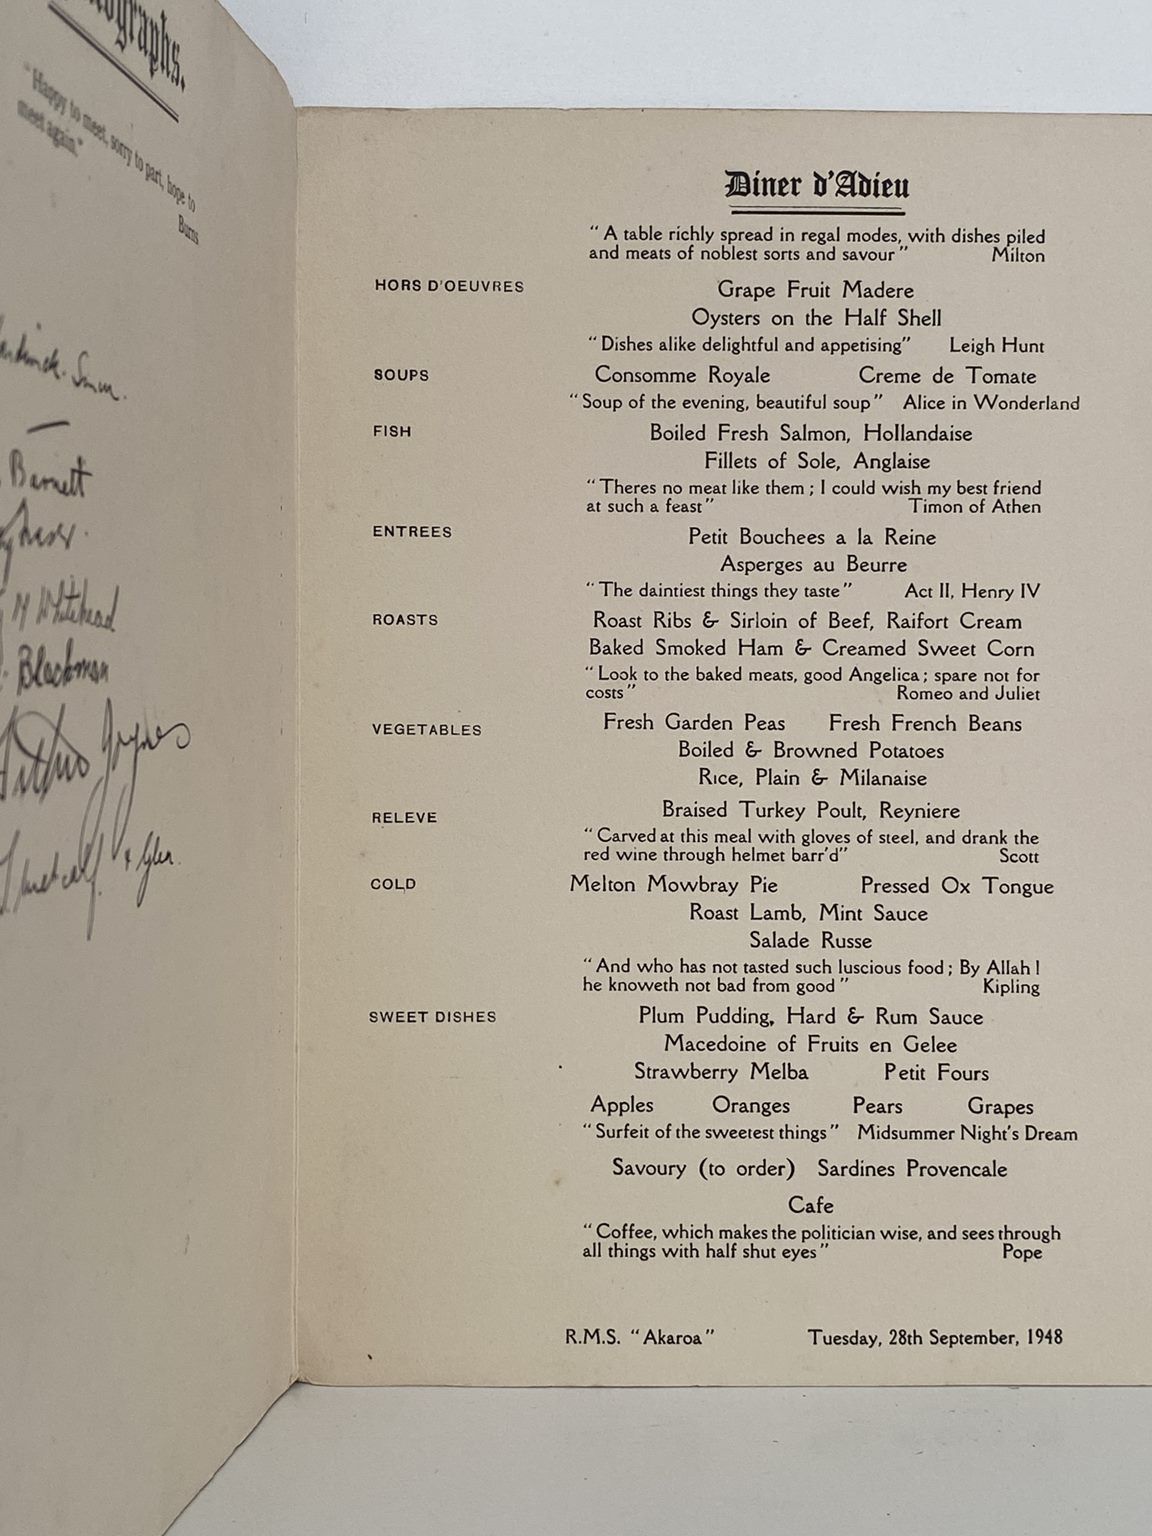 "Happy to meet, sorry to part, hope to
meet again."
Burns
Barnett
M Whitehead
Blackman
Diner d'Adieu
"A table richly spread in regal modes, with dishes piled
and meats of noblest sorts and savour" Milton
HORS D'OEUVRES Grape Fruit Madere
Oysters on the Half Shell
"Dishes alike delightful and appetising" Leigh Hunt
SOUPS Consomme Royale Creme de Tomate
"Soup of the evening, beautiful soup" Alice in Wonderland
FISH Boiled Fresh Salmon, Hollandaise
Fillets of Sole, Anglaise
"Theres no meat like them; I could wish my best friend
at such a feast" Timon of Athen
ENTREES Petit Bouchees a la Reine
Asperges au Beurre
"The daintiest things they taste" Act II, Henry IV
ROASTS Roast Ribs & Sirloin of Beef, Raifort Cream
Baked Smoked Ham & Creamed Sweet Corn
"Look to the baked meats, good Angelica; spare not for
costs" Romeo and Juliet
VEGETABLES Fresh Garden Peas Fresh French Beans
Boiled & Browned Potatoes
Rice, Plain & Milanaise
RELEVE Braised Turkey Poult, Reyniere
"Carved at this meal with gloves of steel, and drank the
red wine through helmet barr'd" Scott
COLD Melton Mowbray Pie Pressed Ox Tongue
Roast Lamb, Mint Sauce
Salade Russe
"And who has not tasted such luscious food; By Allah!
he knoweth not bad from good" Kipling
SWEET DISHES Plum Pudding, Hard & Rum Sauce
Macedoine of Fruits en Gelee
Strawberry Melba Petit Fours
Apples Oranges Pears Grapes
"Surfeit of the sweetest things" Midsummer Night's Dream
Savoury (to order) Sardines Provencale
Cafe
"Coffee, which makes the politician wise, and sees through
all things with half shut eyes" Pope
R.M.S. "Akaroa" Tuesday, 28th September, 1948